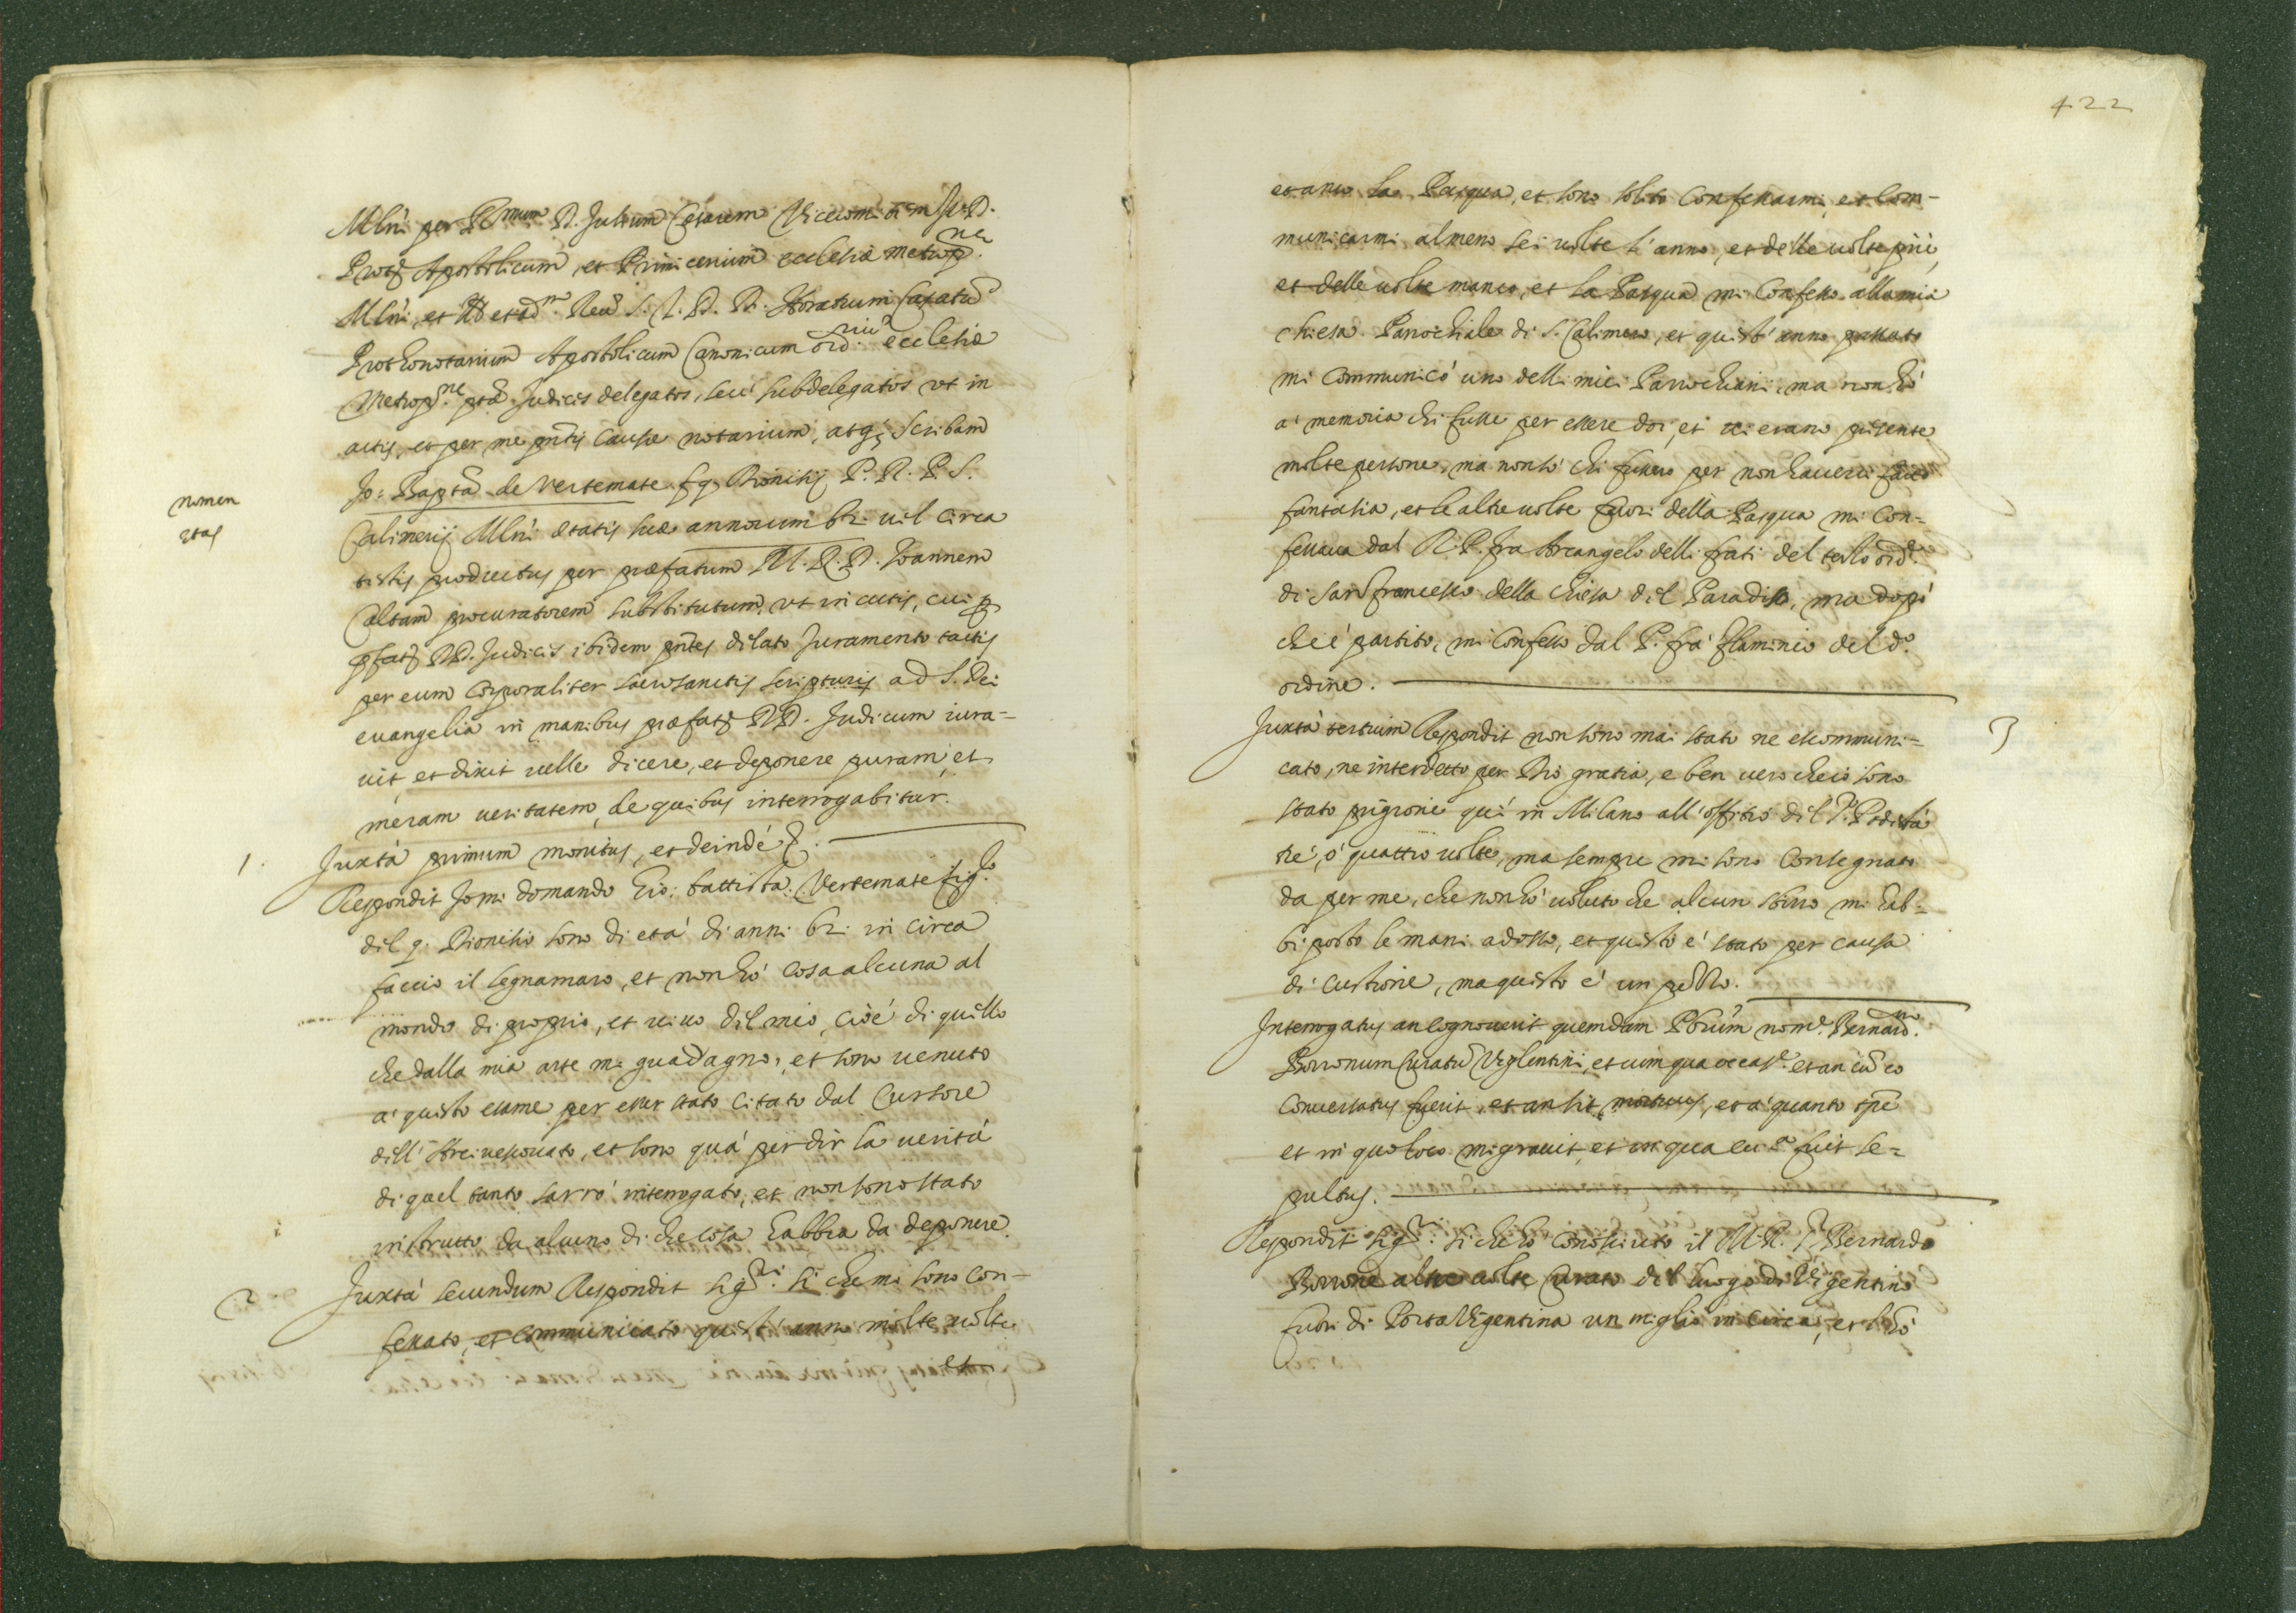 Mlni per Illmum D. Julium Cesarem Vicecomitem Jur. D.
Protm Apostolicum, et Primicerium ecclesiæ metropne
Mlni, et Rev. S. T. D. D. Horatium Casatū
Prothonotarium Apostolicum Canonicum ordriū ecclesiæ
Metropne ptæ Judices delegatos, seu' subdelegatos vt in
actis, et per me pntis causæ notarium, atq; scribam
Jo: Bapta de Vertemate fq. Dionisij P. N. P. S.
nomen
etas
Calimerij Mlni ætatis suæ annorum 62. vel circa
testis productus per præfatum M. R. D. Joannem
Caltam procuratorem substitutum, vt in actis, cui p
pfatos DD. Judices ibidem pntes dilato Juramento tactis
per eum corporaliter sacrosanctis scripturis ad S. Dei
euangelia in manibus præfat. DD. Judicum iura=
uit, et dixit uelle dicere, et deponere puram, et
meram ueritatem, de quibus interrogabitur.
1. Juxtà primum monitus, et deindè &.
Respondit Jo mi domando Gio: battista Vertemate figo
dil q. Dionisio sono di età di anni 62. in circa
faccio il legnamaro, et non hò cosa alcuna al
mondo di proprio, et uiuo dil mio, cioè di quello
che dalla mia arte mi guadagno, et sono uenuto
a' questo esame per esser stato citato dal Cursore
dell' Arciuescouato, et sono quà per dir la uerità
di quel tanto sarrò interrogato, et non sono stato
instrutto da alcuno di che cosa habbia da deponere.
2 Juxtà secundum Respondit sigri si che mi sono con-
fessato, et communicato quest' anno molte uolte
et
422
et anco la Pasqua, et sono solito confessarmi, et com-
municarmi almeno sei uolte l'anno, et delle uolte più,
et delle uolte manco, et la Pasqua mi confesso alla mia
chiesa Parochiale di S. Calimero, et quest' anno passato
mi communicò uno delli miei Parrochiani, ma non hò
a' memoria chi fusse per essere doi, et ui erano presente
molte persone, ma non sò chi fussero per non hauerci fatto
fantasia, et le altre uolte fuori della Pasqua mi con=
fessaua dal R. P. fra Arcangelo delli frati del terzo ord.
di San francesco della chiesa dil Paradiso, ma dopò
che è partito, mi confesso dal P. fra' flaminio del do.
ordine.
3
Juxtà tertium Respondit non sono mai stato ne escommuni=
cato, ne interdetto per Dio gratia, e ben uero che io sono
stato prigione qui' in Milano all' offitio dil Sr. Podestà
trè, ò quattro uolte, ma sempre mi sono consegnato
da per me, che non hò uoluto che alcun sbirro mi hab=
bi posto le mani adosso, et questo è stato per causa
di custione, ma questo è un pezzo.
Interrogatus an cognouerit quemdam Pbrum nome Bernardum
Borronum Curatū Viglentini, et cum qua occase. et an cū eo
conuersatus fuerit, et an sit mortuus, et a' quanto tpe
et in quo loco migrauit, et in qua eccla fuit se=
pultus.
Respondit sigri. si che hò conosciuto il M. R. Sr Bernardo
Borrone altre uolte Curato del luogo di Vigentino
fuori di Porta Vigentina un miglio in circa, et l'hò